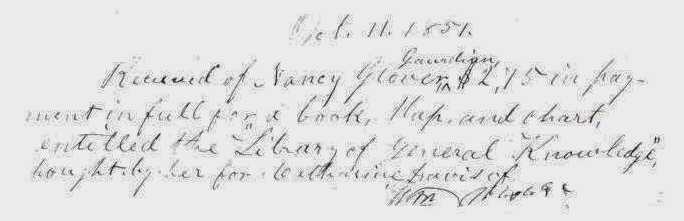 Oct. 11. 1851.
Gaurdian
Received of Nancy Glover, $2,75 in pay-
ment in full for a book, Map, and chart,
entitled the "Library of General Knowledge",
bought by her for Catharine Travis of
Wm